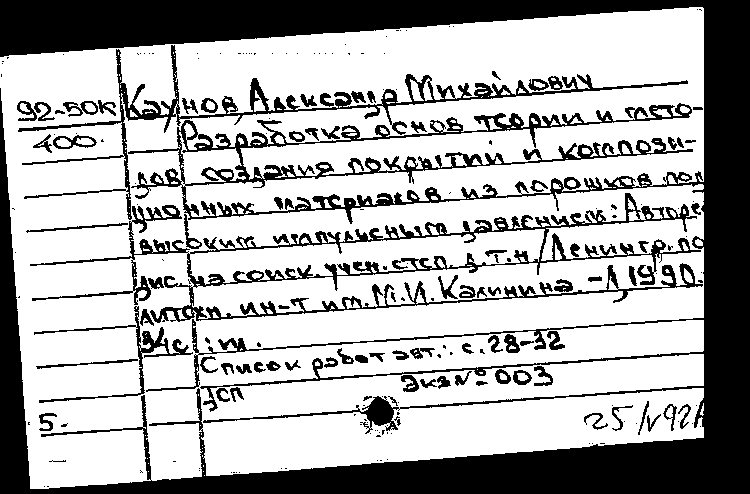 92-50К Каунов, Александр Михайлович
400. Разработка основ теории и мето-
дов создания покрытий и компози-
ционных материалов из порошков под
высоким импульсным давлением: Авторе
дис. на соиск. учен. степ. д.т.н./Ленингр. по
литехн. ин-т им. М.И. Калинина. -Л, 1990.
34с : ил.
Список работ авт.: с. 28-32
ДСП Экз № 003
5.